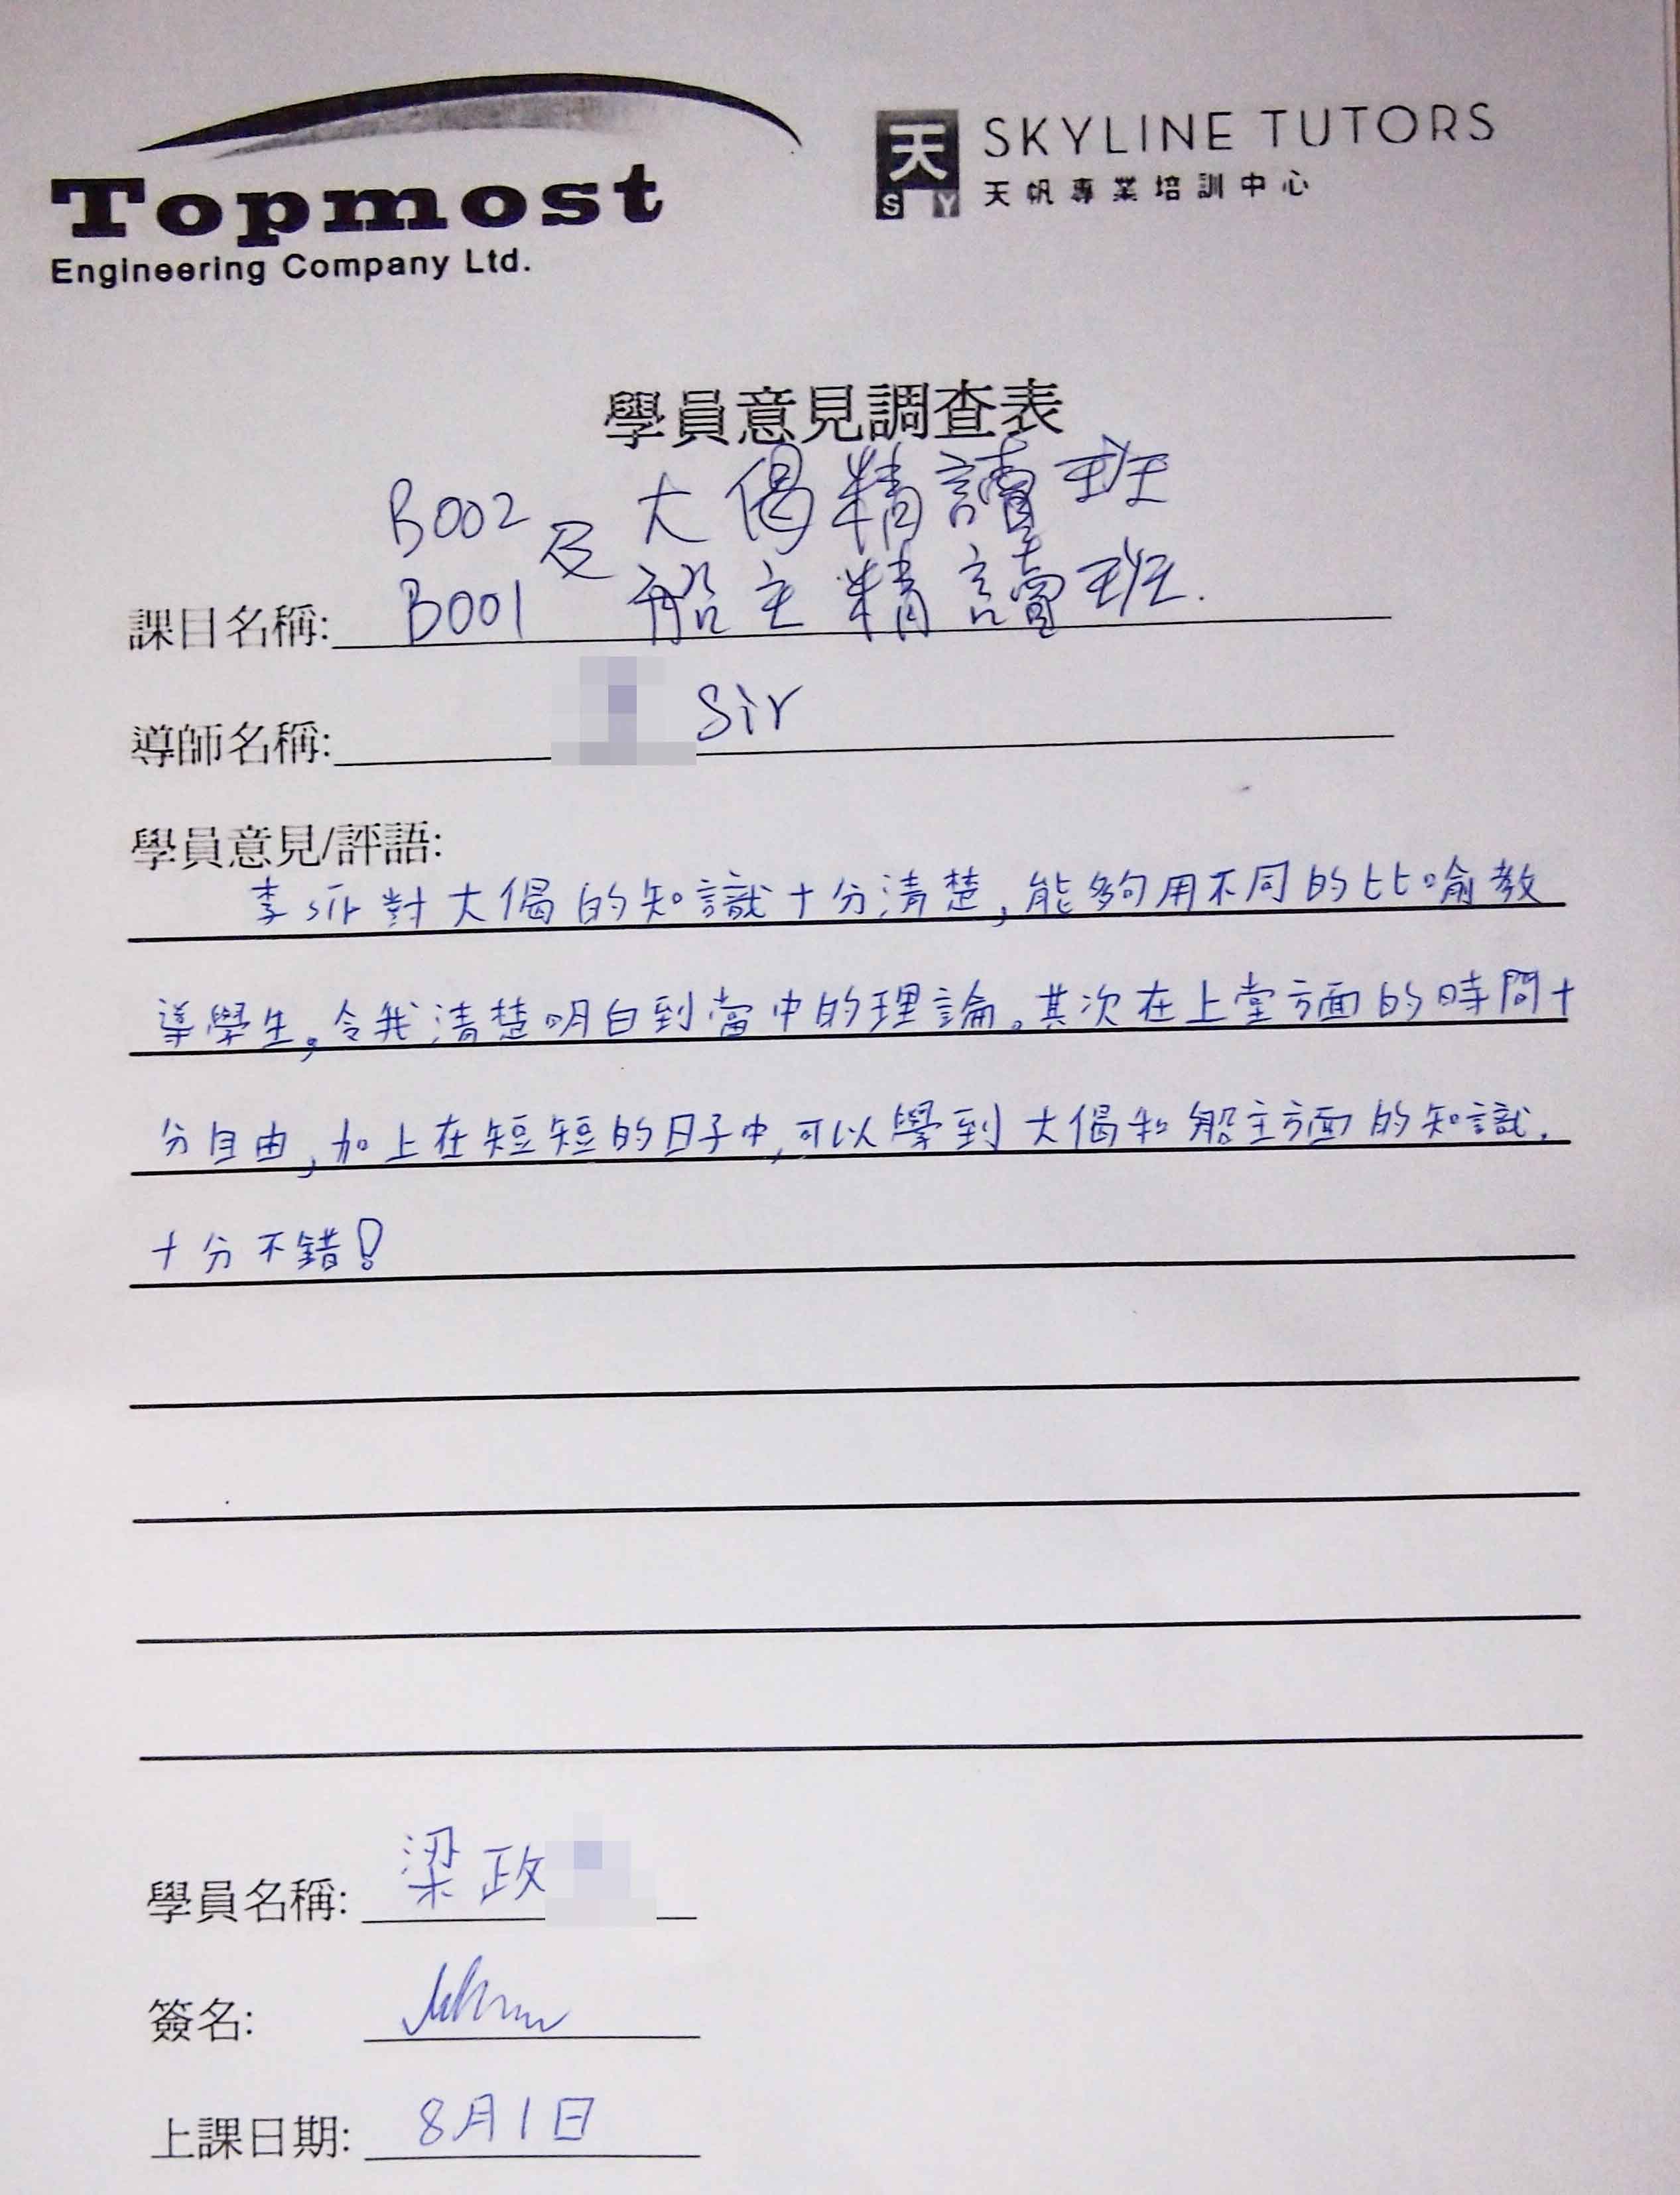 Topmost
Engineering Company Ltd.
天 SKYLINE TUTORS
SY 天帆專業培訓中心
學員意見調查表
B002 及 大偈精讀班
課目名稱: B001 船主精讀班.
導師名稱: Sir
學員意見/評語:
李sir對大偈的知識十分清楚,能夠用不同的比喻教
導學生。令我清楚明白到當中的理論。其次在上堂方面的時間十
分自由,加上在短短的日子中,可以學到大偈和船主方面的知識.
十分不錯!
學員名稱: 梁政
簽名:
上課日期: 8月1日